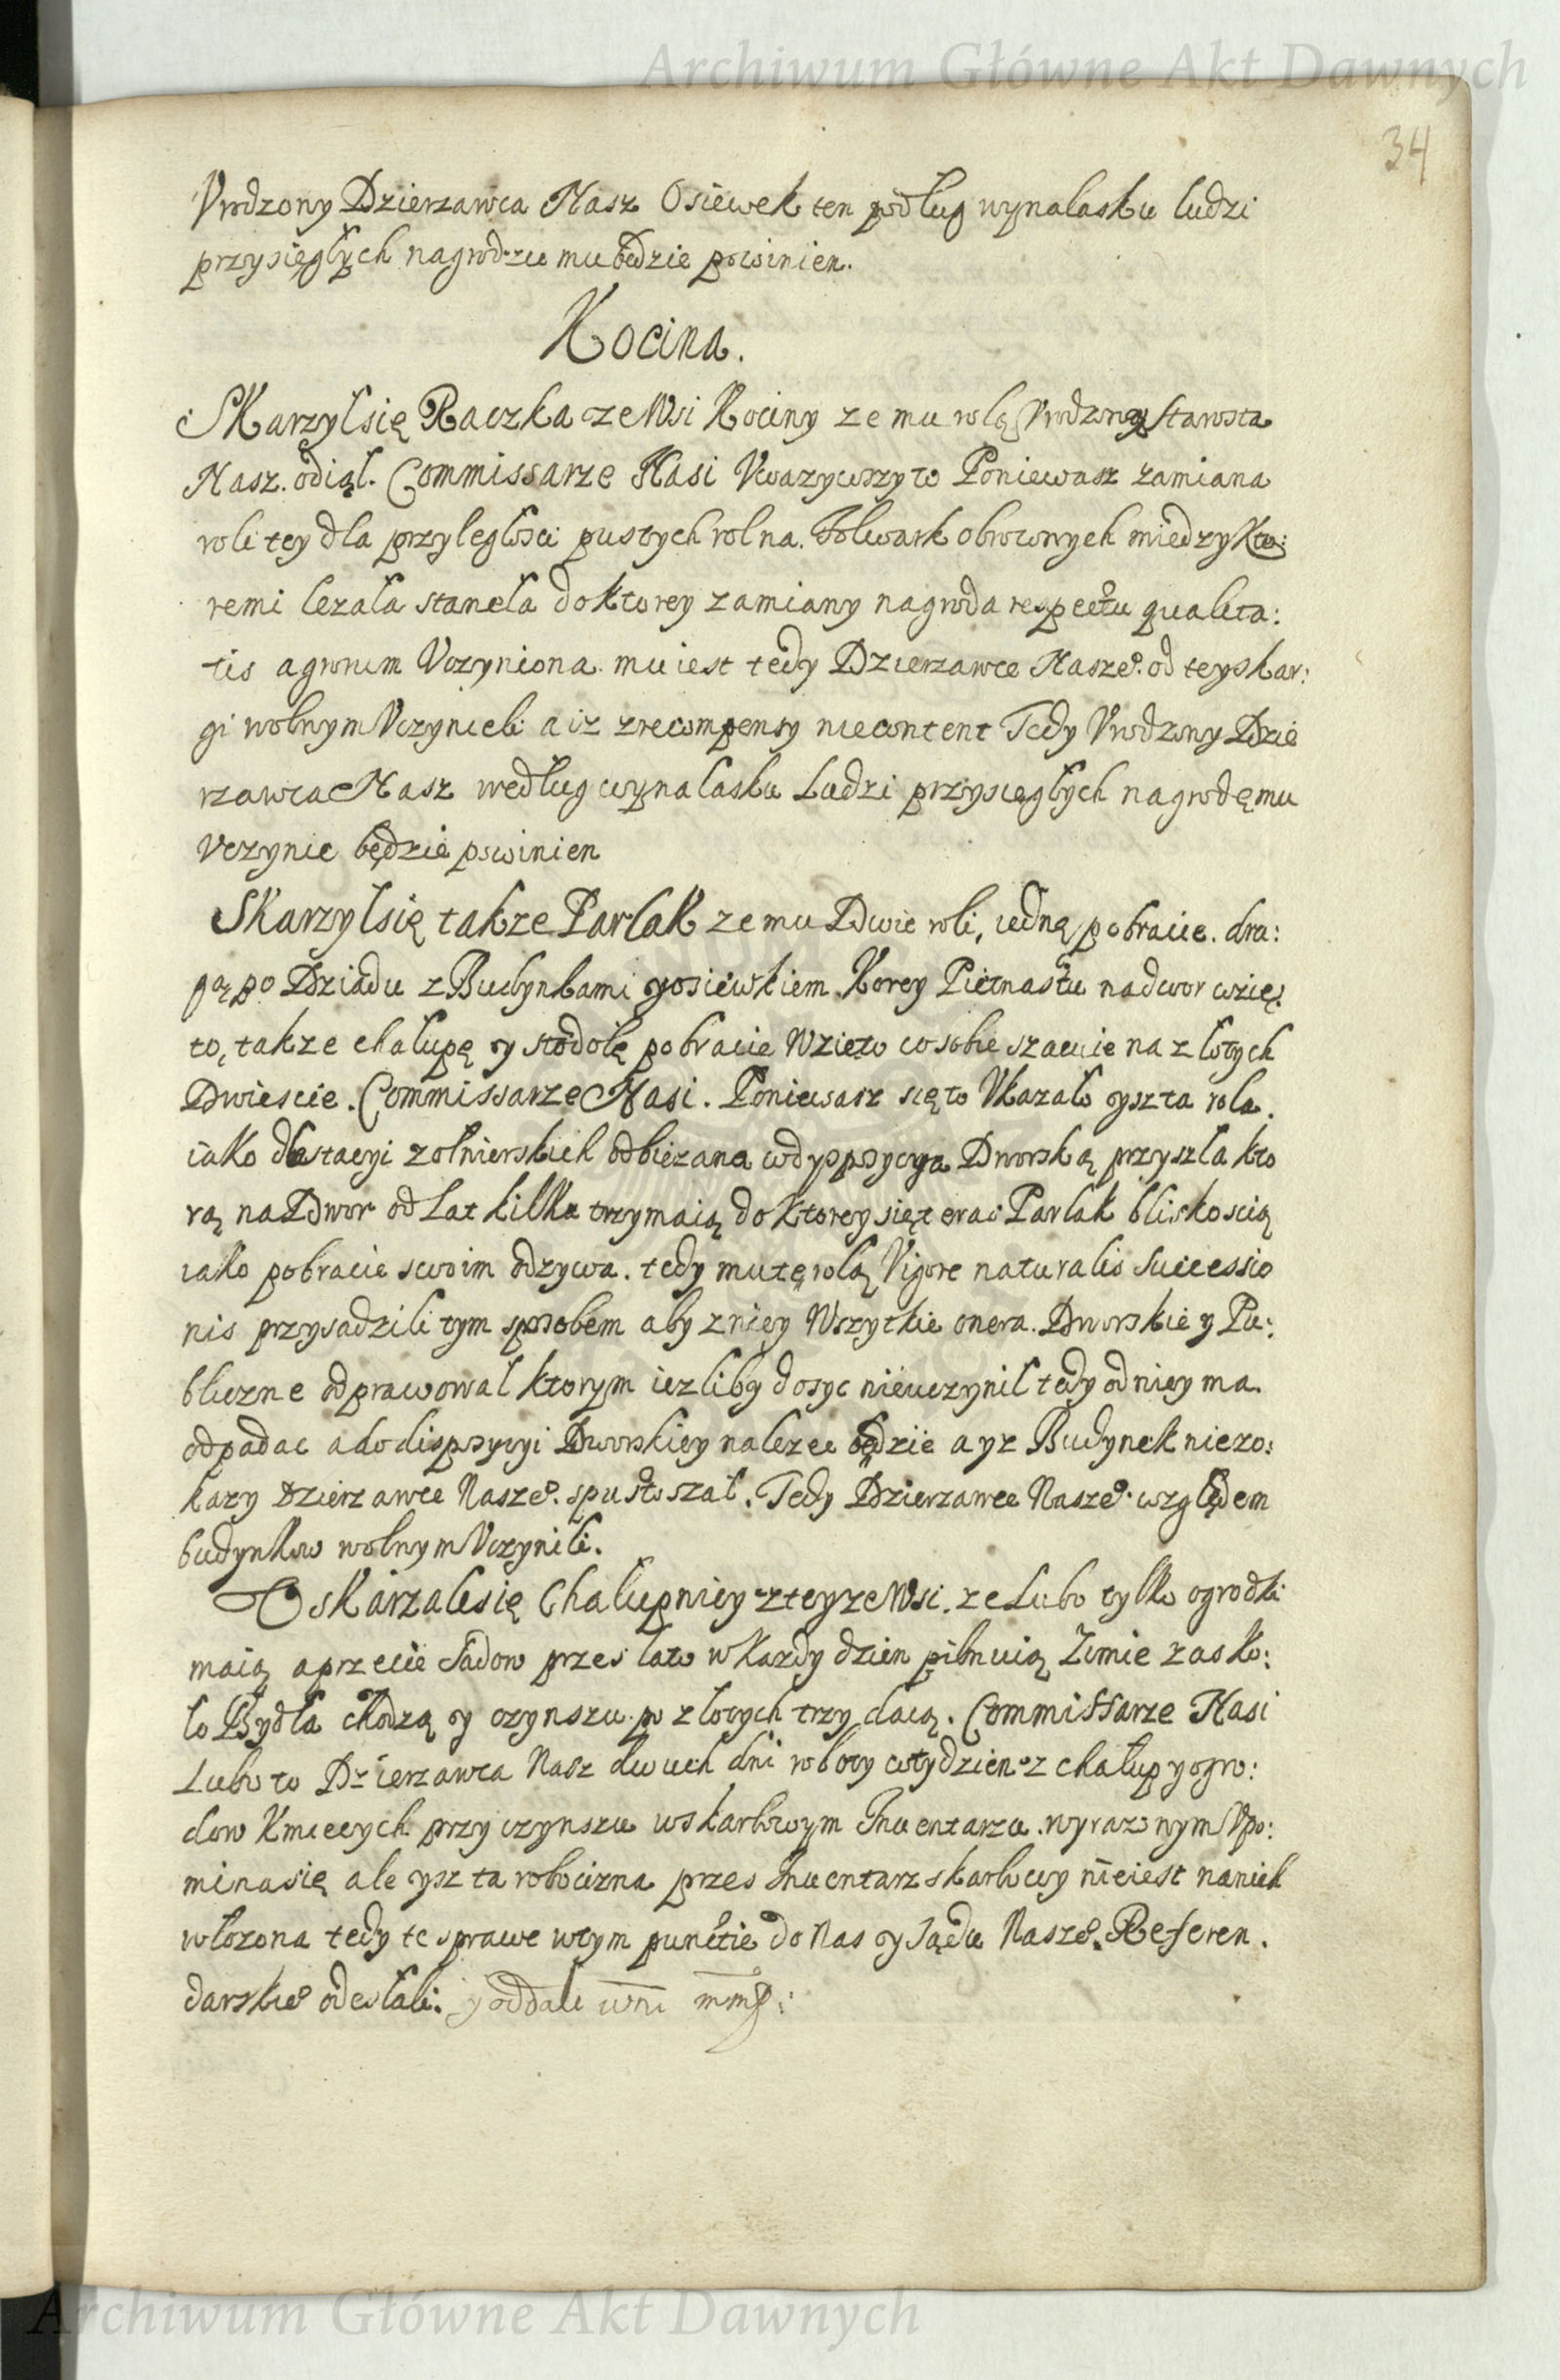 Archiwum Główne Akt Dawnych
34
Vrodzony Dzierzawca Nasz Osiewek ten podług wynalasku ludzi
przysięgłych nagrodzic mu będzie powinien.
Kocina.
Skarzył się Raczka ze Wsi Kociny ze mu rolą Vrodzony Starosta
Nasz. odiął. Commissarze Nasi Vwazywszy to Poniewasz zamiana
roli tey dla przyległosci pustych rol na. Folwark obroconych miedzy kto:
remi lezała staneła do ktorey zamiany nagroda respectu qualita:
tis agrorum Vczyniona. mu iest tedy Dzierzawce Nasze°. od tey skar:
gi wolnym Vczynieli a iz z recompensy niecontent Tedy Vrodzony Dzie
rzawca Nasz według wynalasku Ludzi przysięgłych nagrodę mu
vczynic będzie powinien
Skarzył się takze Parlak ze mu Dwie roli, iedną po bracie. dru:
gą po Dziadu z Budynkami y osiewkiem Korcy Pietnastu na dwor wzię:
to, takze chałupę y stodołę po bracie Wzięto co sobie szacuie na złotych
Dwiescie. Commissarze Nasi. Poniewasz się to Vkazało ysz ta rola.
iako dla stacyi zołnierskich odbiezana w dyspozycyą Dworską przyszła kto
rą na Dwor od Lat kilku trzymaią do ktorey się teras Parlak bliskoscią
iako po bracie swoim odzywa. tedy mu tę rolą Vigore naturalis Successio
nis przysadzili tym sposobem aby z niey Wszytkie onera. Dworskie y Pu:
bliczne odprawował ktorym iezliby dosyc nie uczynił tedy od niey ma.
odpadac a do dispozycyi Dworskiey nalezec będzie a yz Budynek nie zo:
kazy Dzierzawce Nasze°. spustoszał. Tedy Dzierzawce Nasze°. względem
budynkow wolnym Vczynili.
Oskarzali się Chałupnicy z teyze Wsi. ze Lubo tylko ogrodki
maią a przecie Sadow przes lato w kazdy dzien pilnuią Zimie zas ko:
ło Bydła chodzą y czynszu po złotych trzy daią. Commissarze Nasi
Lubo to Dzierzawca Nasz dwuch dni roboty w tydzien z chałup y ogro:
dow Kmiecych przy czynszu w skarbowym Inuentarzu. wyrazonym Vpo:
mina się ale ysz ta robocizna przes Inuentarz skarbowy nieiest na nich
włozona tedy te sprawe w tym punctie do Nas y Sądu Nasze°. Referen.
darskie° odesłali. y oddali
Archiwum Główne Akt Dawnych